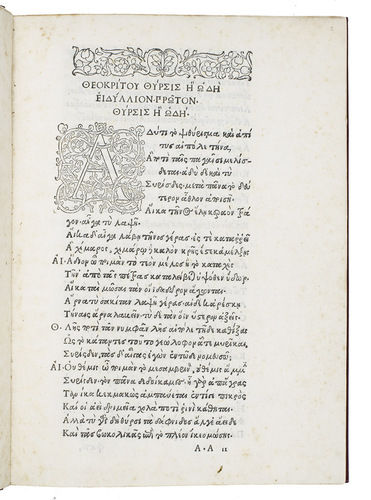 ΘΕΟΚΡΙΤΟΥ ΘΥΡΣΙΣ Ἢ ᾨΔΗ
ΕΙΔΥΛΛΙΟΝ·ΠΡΩΤΟΝ·
ΘΥΡΣΙΣ Ἢ ᾨΔΗ·
Α Δύ τι τὸ ψιθύρισμα καὶ ἁ πί
τυς αἰπόλε τήνα,
Ἃ ποτὶ ταῖς παγαῖσι μελίσ
δεται· ἁδὺ δὲ καὶ τὺ
Συρίσδες· μετὰ πᾶνα τὸ δεύ
τερον ἆθλον ἀποισῇ.
Αἴκα τῆνος ἕλῃ κεραὸν τρά
γον, αἶγα τὺ λαψῇ.
Αἴκα δ' αἶγα λάβῃ τῆνος γέρας, ἐς τὲ καταρρεῖ
Ἁ χίμαρος, χιμάρω δὲ καλὸν κρῆς ἔστε κ' ἀμέλξῃς
ΑΙ· Ἅδιον ὦ ποιμὰν τὸ τεὸν μέλος ἢ τὸ καταχὲς
Τῆν' ἀπὸ τᾶς πέτρας καταλείβεται ὑψόθεν ὕδωρ.
Αἴκα ταὶ μῶσαι τὰν οἴιδα δῶρον ἄγωνται
Ἄρνα τὺ σακίταν λαψῇ γέρας· αἰ δέ κ' ἀρέσκῃ
Τήναις ἄρνα λαβεῖν· τὺ δὲ τὰν ὄϊν ὕστερον ἀξῇς.
Θ· Λῇς ποτὶ τᾶν νυμφᾶν λῇς αἰπόλε τῇδε καθίξας
Ὡς τὸ κάταντες τοῦτο γεώλοφον ᾇ τε μυρῖκαι,
Συρίσδεν, τὰς δ' αἶγας ἐγὼν ἐν τῷδε νομευσῶ·
ΑΙ· Οὐ θέμις ὦ ποιμὰν τὸ μεσαμβρινὸν, οὐ θέμις ἄμμιν
Συρίσδεν· τὸν πᾶνα δεδοίκαμες· ἦ γὰρ ἀπ' ἄγρας
Τανίκα κεκμακὼς ἀμπαύεται ἐντί γε πικρὸς
Καί οἱ ἀεὶ δριμεῖα χολὰ ποτὶ ῥινὶ κάθηται.
Ἀλλὰ τὺ γὰρ δὴ θύρσι τὰ δάφνιδος ἄλγεα εἶδες
Καὶ τᾶς βωκολικᾶς ἐπὶ τὸ πλέον ἵκεο μώσης·
Α·Α ΙΙ